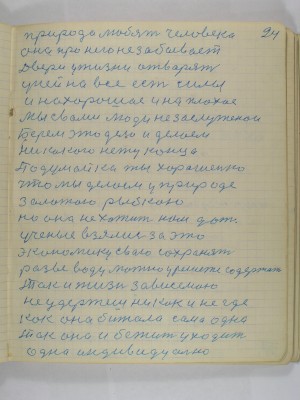 природа любят человека 24
она про него незабывает
Двери ужизни отварят
у ней на все ест силы
и на хорошае и на плохае
мы свами люди незаслуженои
Берем это дело и делоем
никокого нету конца
Подумайка ты хорашенко
что мы делоем у природе
Золотою рыбкою
но она нехотит ном дот
ученые взялис за это
экономику сваю сохронят
разве воду можно удержет содержат
Так и жизн зависемою
неудержеш никок и не где
как она битала сама одна
Так она и бежит уходит
одна индивидуално